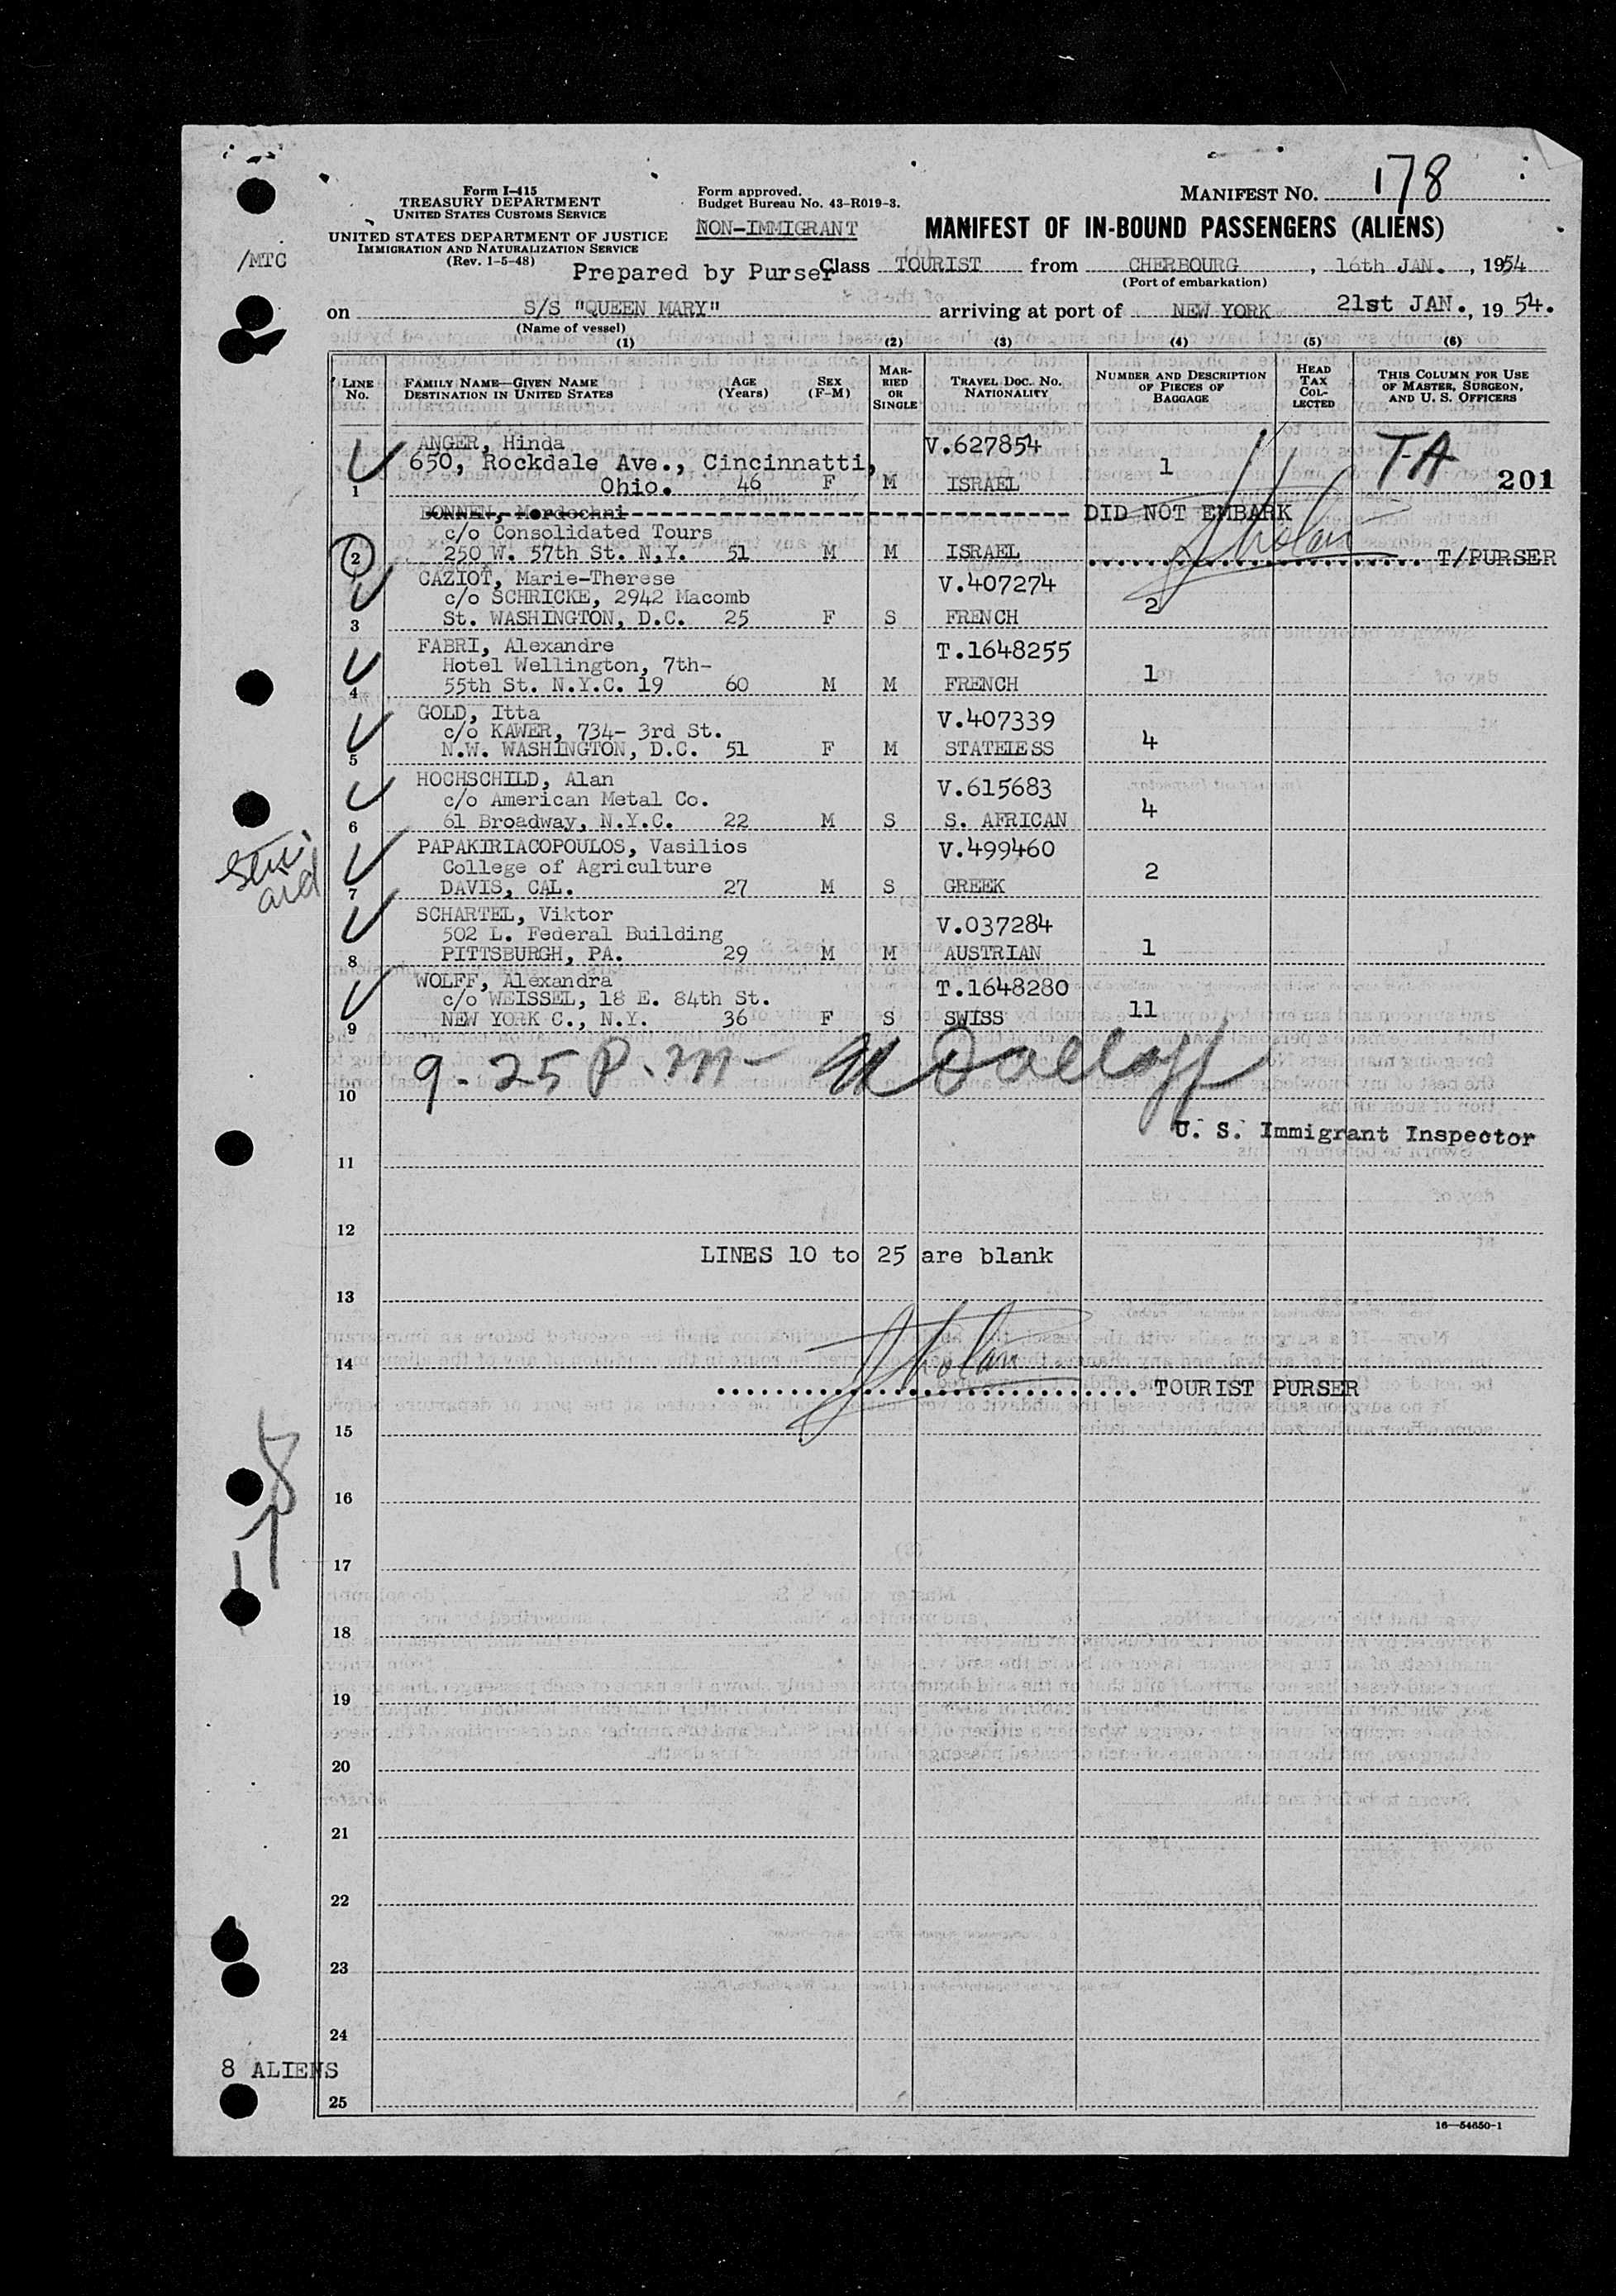 Form I-415
TREASURY DEPARTMENT
UNITED STATES CUSTOMS SERVICE
UNITED STATES DEPARTMENT OF JUSTICE
IMMIGRATION AND NATURALIZATION SERVICE
(Rev. 1-5-48)
Form approved.
Budget Bureau No. 43-R019-3.
NON-IMMIGRANT
MANIFEST NO. 178
MANIFEST OF IN-BOUND PASSENGERS (ALIENS)
/MTC
Prepared by Purser
Class TOURIST from CHERBOURG, 16th JAN., 1954
(Port of embarkation)
on S/S "QUEEN MARY" arriving at port of NEW YORK 21st JAN., 19 54.
(Name of vessel)
(1) (2) (3) (4) (5) (6)
LINE NO. FAMILY NAME—GIVEN NAME DESTINATION IN UNITED STATES AGE (Years) SEX (F-M) MARRIED OR SINGLE TRAVEL DOC. NO. NATIONALITY NUMBER AND DESCRIPTION OF PIECES OF BAGGAGE HEAD TAX COLLECTED THIS COLUMN FOR USE OF MASTER, SURGEON, AND U. S. OFFICERS
ANGER, Hinda V.627854
650, Rockdale Ave., Cincinnatti, 1 T-A
1 Ohio. 46 F M ISRAEL 201
DONNEN, Mordechni DID NOT EMBARK
c/o Consolidated Tours
2 250 W. 57th St. N.Y. 51 M M ISRAEL T/PURSER
CAZIOT, Marie-Therese V.407274
c/o SCHRICKE, 2942 Macomb 2
3 St. WASHINGTON, D.C. 25 F S FRENCH
FABRI, Alexandre T.1648255
Hotel Wellington, 7th- 1
4 55th St. N.Y.C. 19 60 M M FRENCH
GOLD, Itta V.407339
c/o KAWER, 734- 3rd St. 4
5 N.W. WASHINGTON, D.C. 51 F M STATELESS
HOCHSCHILD, Alan V.615683
c/o American Metal Co. 4
6 61 Broadway, N.Y.C. 22 M S S. AFRICAN
PAPAKIRIACOPOULOS, Vasilios V.499460
College of Agriculture 2
7 DAVIS, CAL. 27 M S GREEK
SCHARTEL, Viktor V.037284
502 L. Federal Building 1
8 PITTSBURGH, PA. 29 M M AUSTRIAN
WOLFF, Alexandra T.1648280
c/o WEISSEL, 18 E. 84th St. 11
9 NEW YORK C., N.Y. 36 F S SWISS
9-25 P.m-
10
U. S. Immigrant Inspector
11
12
LINES 10 to 25 are blank
13
14
TOURIST PURSER
15
16
178
17
18
19
20
21
22
23
24
8 ALIENS
25
16—54650-1